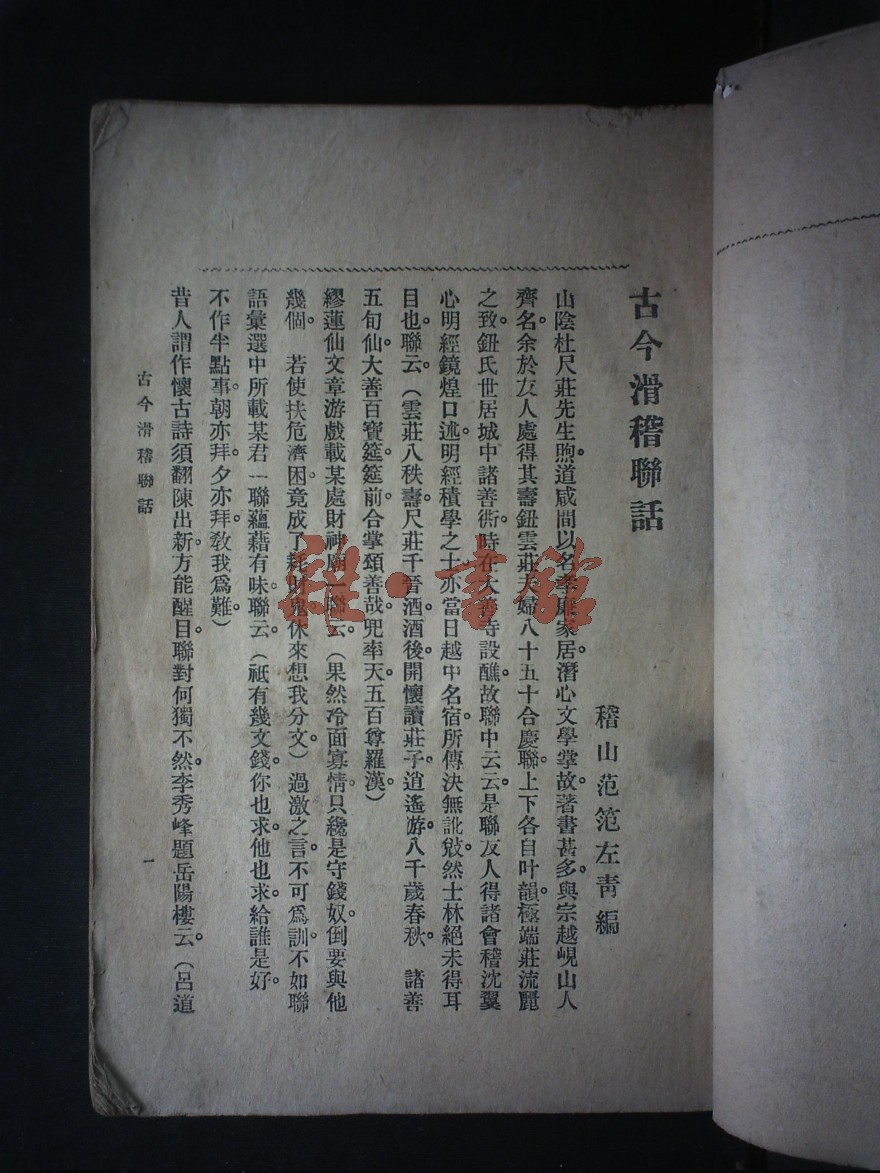 古今滑稽聯話
稽山范范左青編
山陰杜尺莊先生煦。道咸間以名孝廉家居。潛心文學掌故。著書甚多。與宗越峴山人
齊名。余於友人處得其壽鈕雲莊夫婦八十五十合慶聯。上下各自叶韻。極端莊流麗
之致。鈕氏世居城中諸善衖。時在大善寺設醮。故聯中云云。是聯友人得諸會稽沈翼
心明經鏡煌口述。明經積學之士。亦當日越中名宿。所傳決無訛敓。然士林絕未得耳
目也。聯云。（雲莊八秩壽。尺莊千晉酒。酒後開懷讀莊子。逍遙游。八千歲春秋。　諸善
五旬仙。大善百寶筵。筵前合掌頌善哉。兜率天。五百尊羅漢。）
繆蓮仙文章游戲載某處財神廟一聯云。（果然冷面寡情。只纔是守錢奴。倒要與他
幾個。　若使扶危濟困。竟成了耗財鬼。休來想我分文。）過激之言。不可為訓。不如聯
語彙選中所載某君一聯蘊藉有味。聯云。（祇有幾文錢。你也求。他也求。給誰是好。
不作半點事。朝亦拜。夕亦拜。敎我為難。）
昔人謂作懷古詩須翻陳出新。方能醒目。聯對何獨不然。李秀峰題岳陽樓云。（呂道
古今滑稽聯話
一
雜·書館